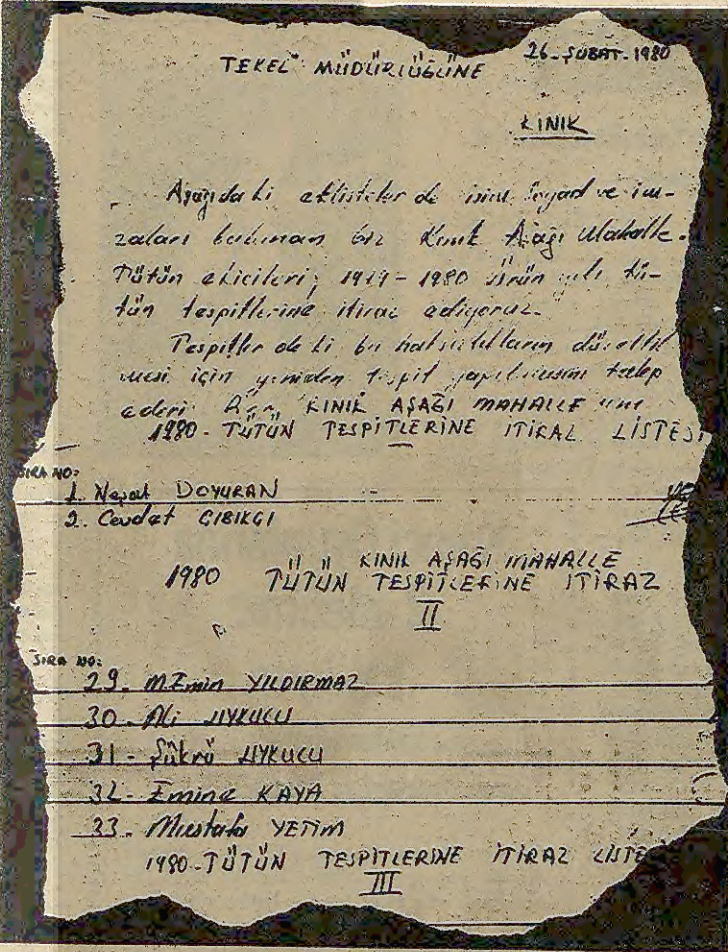 26-ŞUBAT-1980
TEKEL MÜDÜRLÜĞÜNE
KINIK
Aşağıda ki ek listeler de isim, soyad ve im-
zaları bulunan biz Kınık Aşağı Mahalle-
Tütün ekicileri; 1979-1980 ürün yılı tü-
tün tespitlerine itiraz ediyoruz.
Tespitler de ki bu haksızlıkların düzeltil
mesi için yeniden tespit yapılmasını talep
ederi KINIK AŞAĞI MAHALLE
1980-TÜTÜN TESPİTLERİNE İTİRAZ LİSTESİ
SIRA NO:
1. Neşat DOYURAN
2. Cevdet CIBIKCI
KINIK AŞAĞI MAHALLE
1980 TÜTÜN TESPİTLERİNE İTİRAZ
II
SIRA NO:
29- M.Emin YILDIRMAZ
30- Ali UYKUCU
31- Şükrü UYKUCU
32- Emine KAYA
33- Mustafa YETİM
1980-TÜTÜN TESPİTLERİNE İTİRAZ LİSTE
III